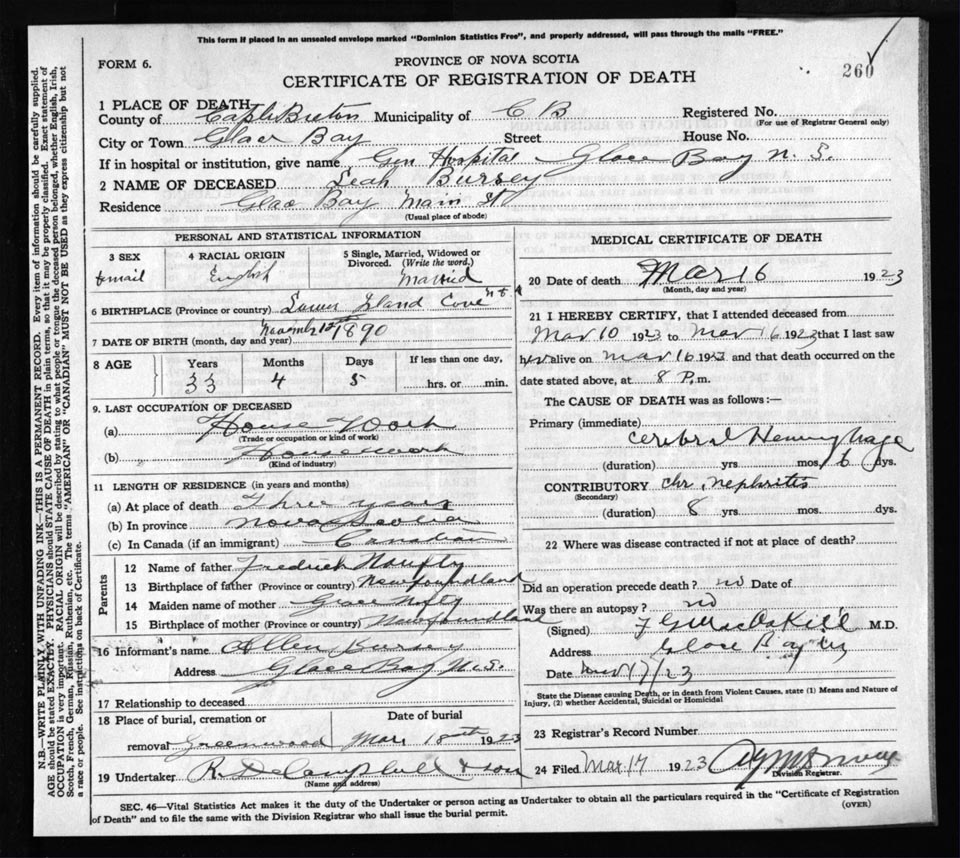 This form if placed in an unsealed envelope marked "Dominion Statistics Free", and properly addressed, will pass through the mails "FREE."
FORM 6.
PROVINCE OF NOVA SCOTIA
CERTIFICATE OF REGISTRATION OF DEATH
260
1 PLACE OF DEATH
County of Cape Breton Municipality of C B Registered No.
(For use of Registrar General only)
City or Town Glace Bay Street House No.
If in hospital or institution, give name Gen Hospital Glace Bay N. S.
2 NAME OF DECEASED Leah Bursey
Residence Glace Bay Main St
(Usual place of abode)
PERSONAL AND STATISTICAL INFORMATION
3 SEX 4 RACIAL ORIGIN 5 Single, Married, Widowed or Divorced. (Write the word.)
English Married
6 BIRTHPLACE (Province or country) Lower Island Cove
7 DATE OF BIRTH (month, day and year) 1890
8 AGE Years Months Days If less than one day,
33 4 5 hrs. or min.
9. LAST OCCUPATION OF DECEASED
(a) House Work
(Trade or occupation or kind of work)
(b) Housework
(Kind of industry)
11 LENGTH OF RESIDENCE (in years and months)
(a) At place of death Three years
(b) In province Nova Scotia
(c) In Canada (if an immigrant) Canadian
Parents
12 Name of father
13 Birthplace of father (Province or country) Newfoundland
14 Maiden name of mother
15 Birthplace of mother (Province or country) Newfoundland
16 Informant's name Allen Bursey
Address Glace Bay N.S.
17 Relationship to deceased
18 Place of burial, cremation or removal Greenwood
Date of burial
Mar 18th 1923
19 Undertaker
(Name and address)
MEDICAL CERTIFICATE OF DEATH
20 Date of death Mar 16 1923
(Month, day and year)
21 I HEREBY CERTIFY, that I attended deceased from
Mar 10 1923 to Mar 16 1923 that I last saw
her alive on Mar 16 1923 and that death occurred on the
date stated above, at 8 P. m.
The CAUSE OF DEATH was as follows:—
Primary (immediate)
Cerebral Hemorrhage
(duration) yrs. mos. 6 dys.
CONTRIBUTORY chr. nephritis
(Secondary)
(duration) 8 yrs. mos. dys.
22 Where was disease contracted if not at place of death?
Did an operation precede death? no Date of
Was there an autopsy? no
(Signed) M.D.
Address Glace Bay
Date 17/23
State the Disease causing Death, or in death from Violent Causes, state (1) Means and Nature of
Injury, (2) whether Accidental, Suicidal or Homicidal
23 Registrar's Record Number
24 Filed Mar 17 1923
Division Registrar.
SEC. 46—Vital Statistics Act makes it the duty of the Undertaker or person acting as Undertaker to obtain all the particulars required in the "Certificate of Registration
of Death" and to file the same with the Division Registrar who shall issue the burial permit.
(OVER)
N.B.—WRITE PLAINLY WITH UNFADING INK—THIS IS A PERMANENT RECORD. Every item of information should be carefully supplied.
AGE should be stated EXACTLY. PHYSICIANS should STATE CAUSE OF DEATH in plain terms, so that it may be properly classified. Exact statement of
OCCUPATION is very important. RACIAL ORIGIN will be described by stating to what people or tongue the deceased person belonged, whether English, Irish,
Scotch, French, German, Russian, Ruthenian, etc. The terms "AMERICAN" OR "CANADIAN" MUST NOT BE USED as they express citizenship but not
a race or people. See instructions on back of Certificate.